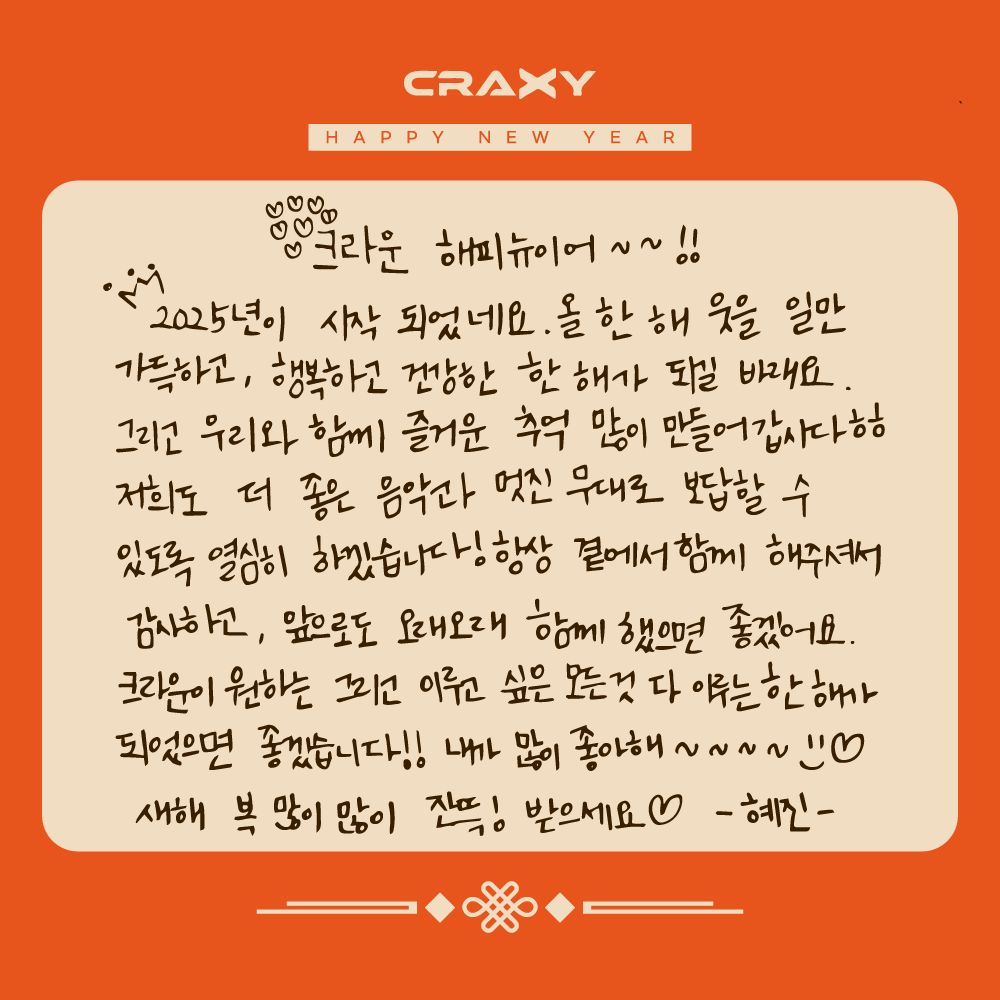 CRAXY
HAPPY NEW YEAR
크라운 해피뉴이어 ~ ~ !!
2025년이 시작 되었네요. 올 한 해 웃을 일만
가득하고, 행복하고 건강한 한 해가 되길 바래요.
그리고 우리와 함께 즐거운 추억 많이 만들어갑시다 ㅎㅎ
저희도 더 좋은 음악과 멋진 무대로 보답할 수
있도록 열심히 하겠습니다! 항상 곁에서 함께 해주셔서
감사하고, 앞으로도 오래오래 함께 했으면 좋겠어요.
크라운이 원하는 그리고 이루고 싶은 모든것 다 이루는 한 해가
되었으면 좋겠습니다!! 내가 많이 좋아해 ~ ~ ~ ~ :) ♡
새해 복 많이 많이 잔뜩! 받으세요♡ - 혜진 -